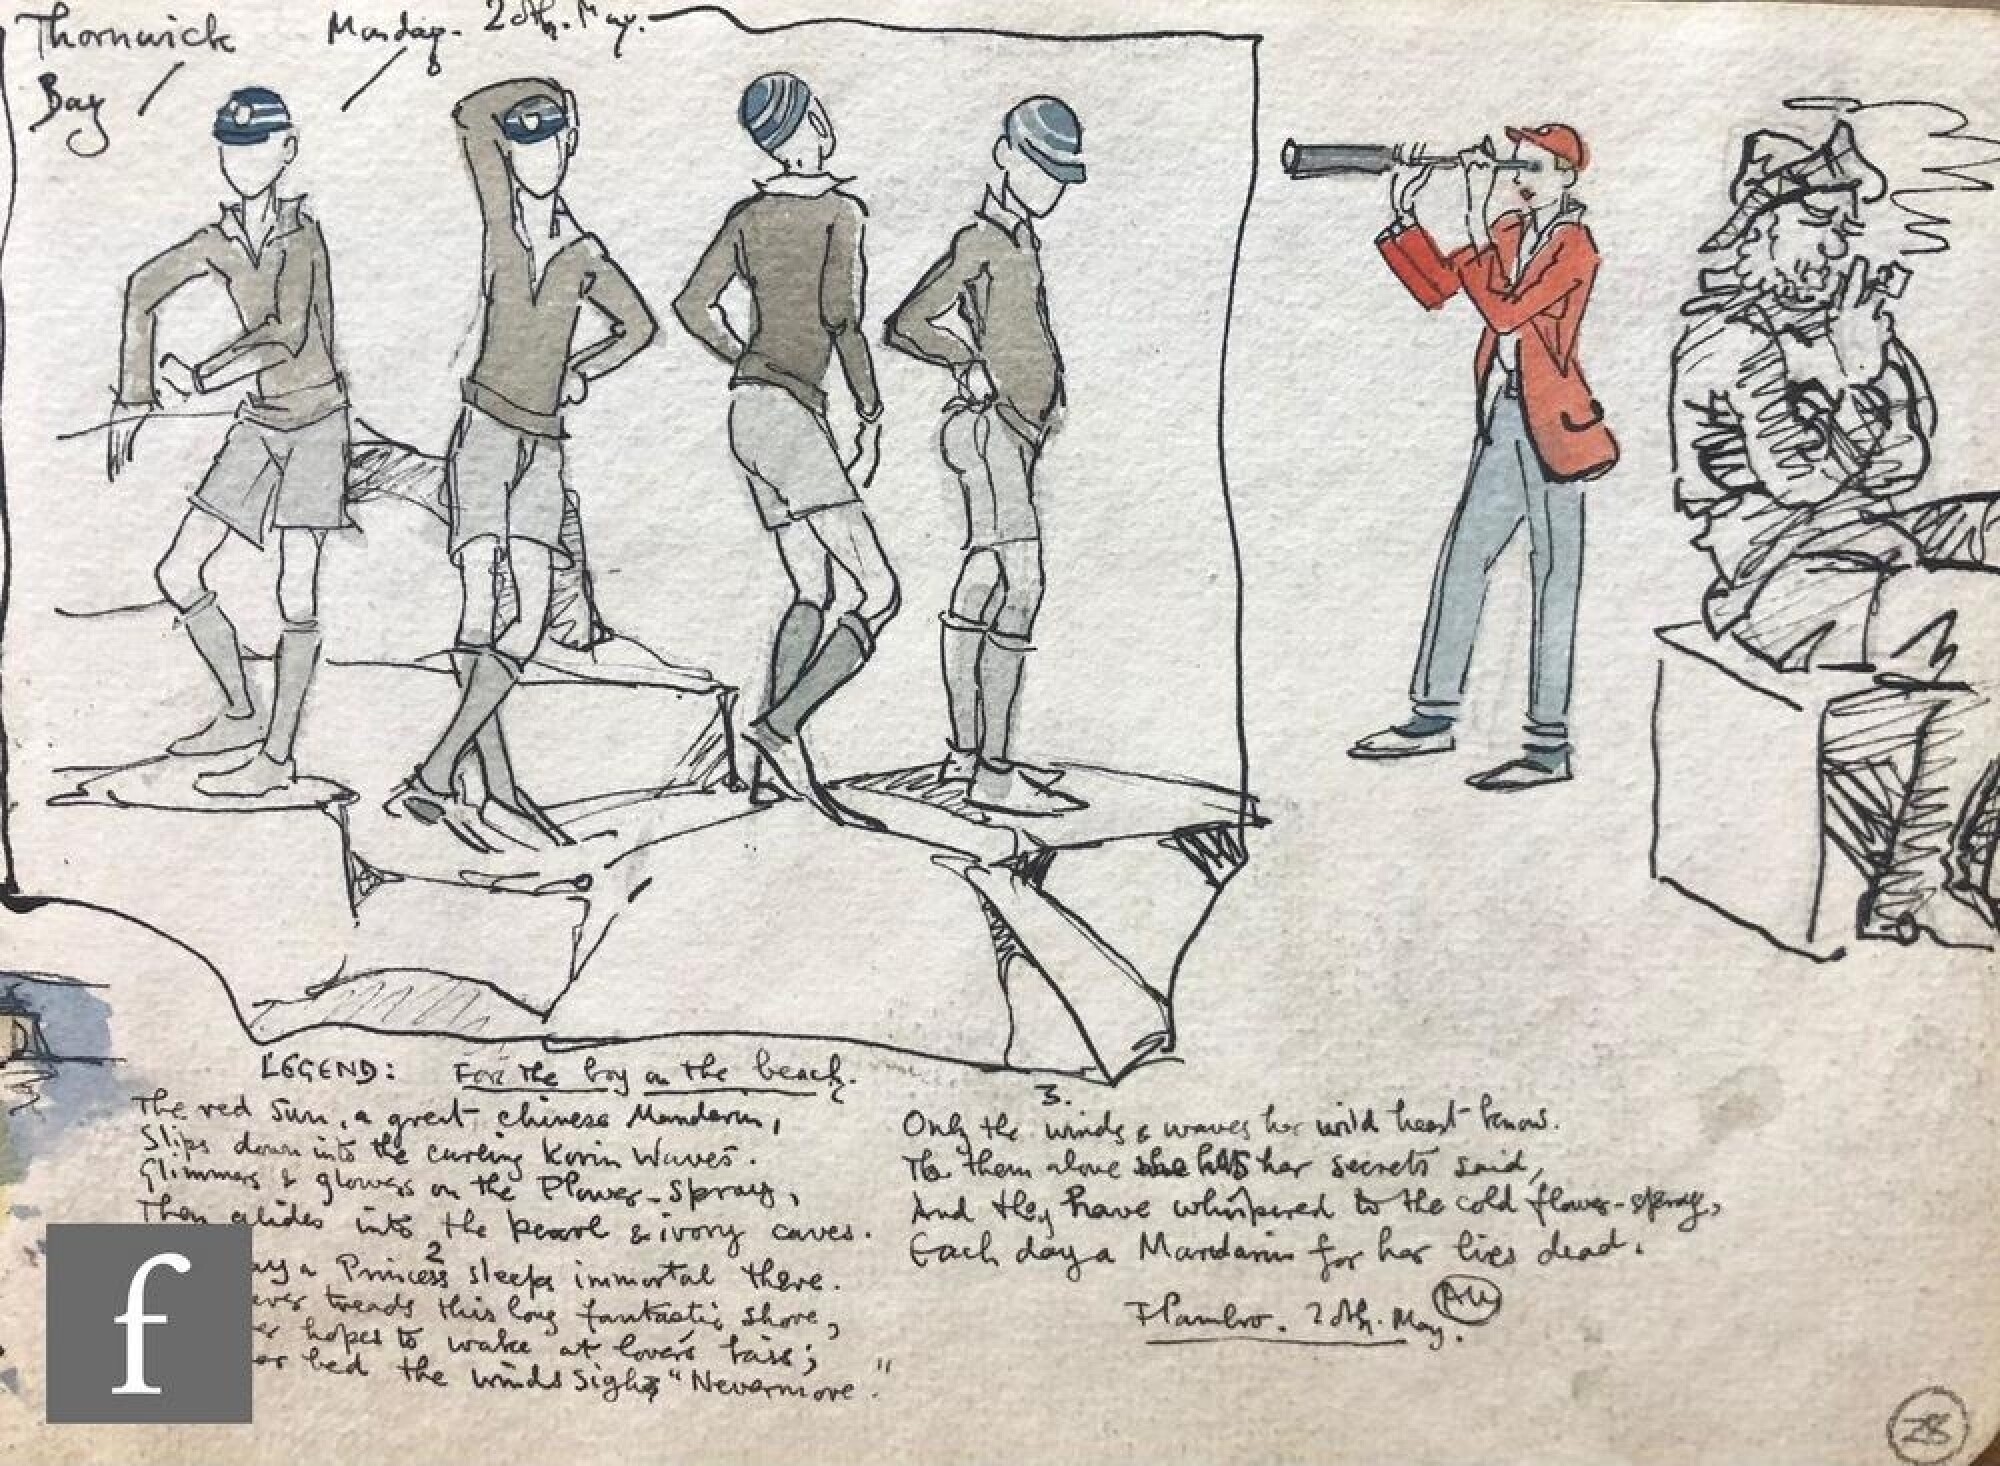 Thornwick Monday. 20th. May.
Bay
LEGEND: For the boy on the beach.
The red Sun, a great chinese Mandarin,
Slips down into the curling Korin Waves.
Glimmers & glowers on the Flower-Spray,
Then glides into the pearl & ivory caves.
2
a Princess sleeps immortal there.
ever treads this long fantastic shore,
hopes to wake at lovers kiss;
bed the winds Sighs "Nevermore."
3.
Only the winds & waves her wild heart know.
To them alone has her secrets said,
And they have whispered to the cold flower-spray,
Each day a Mandarin for her lies dead.
Flambro. 20th. May.
f
28